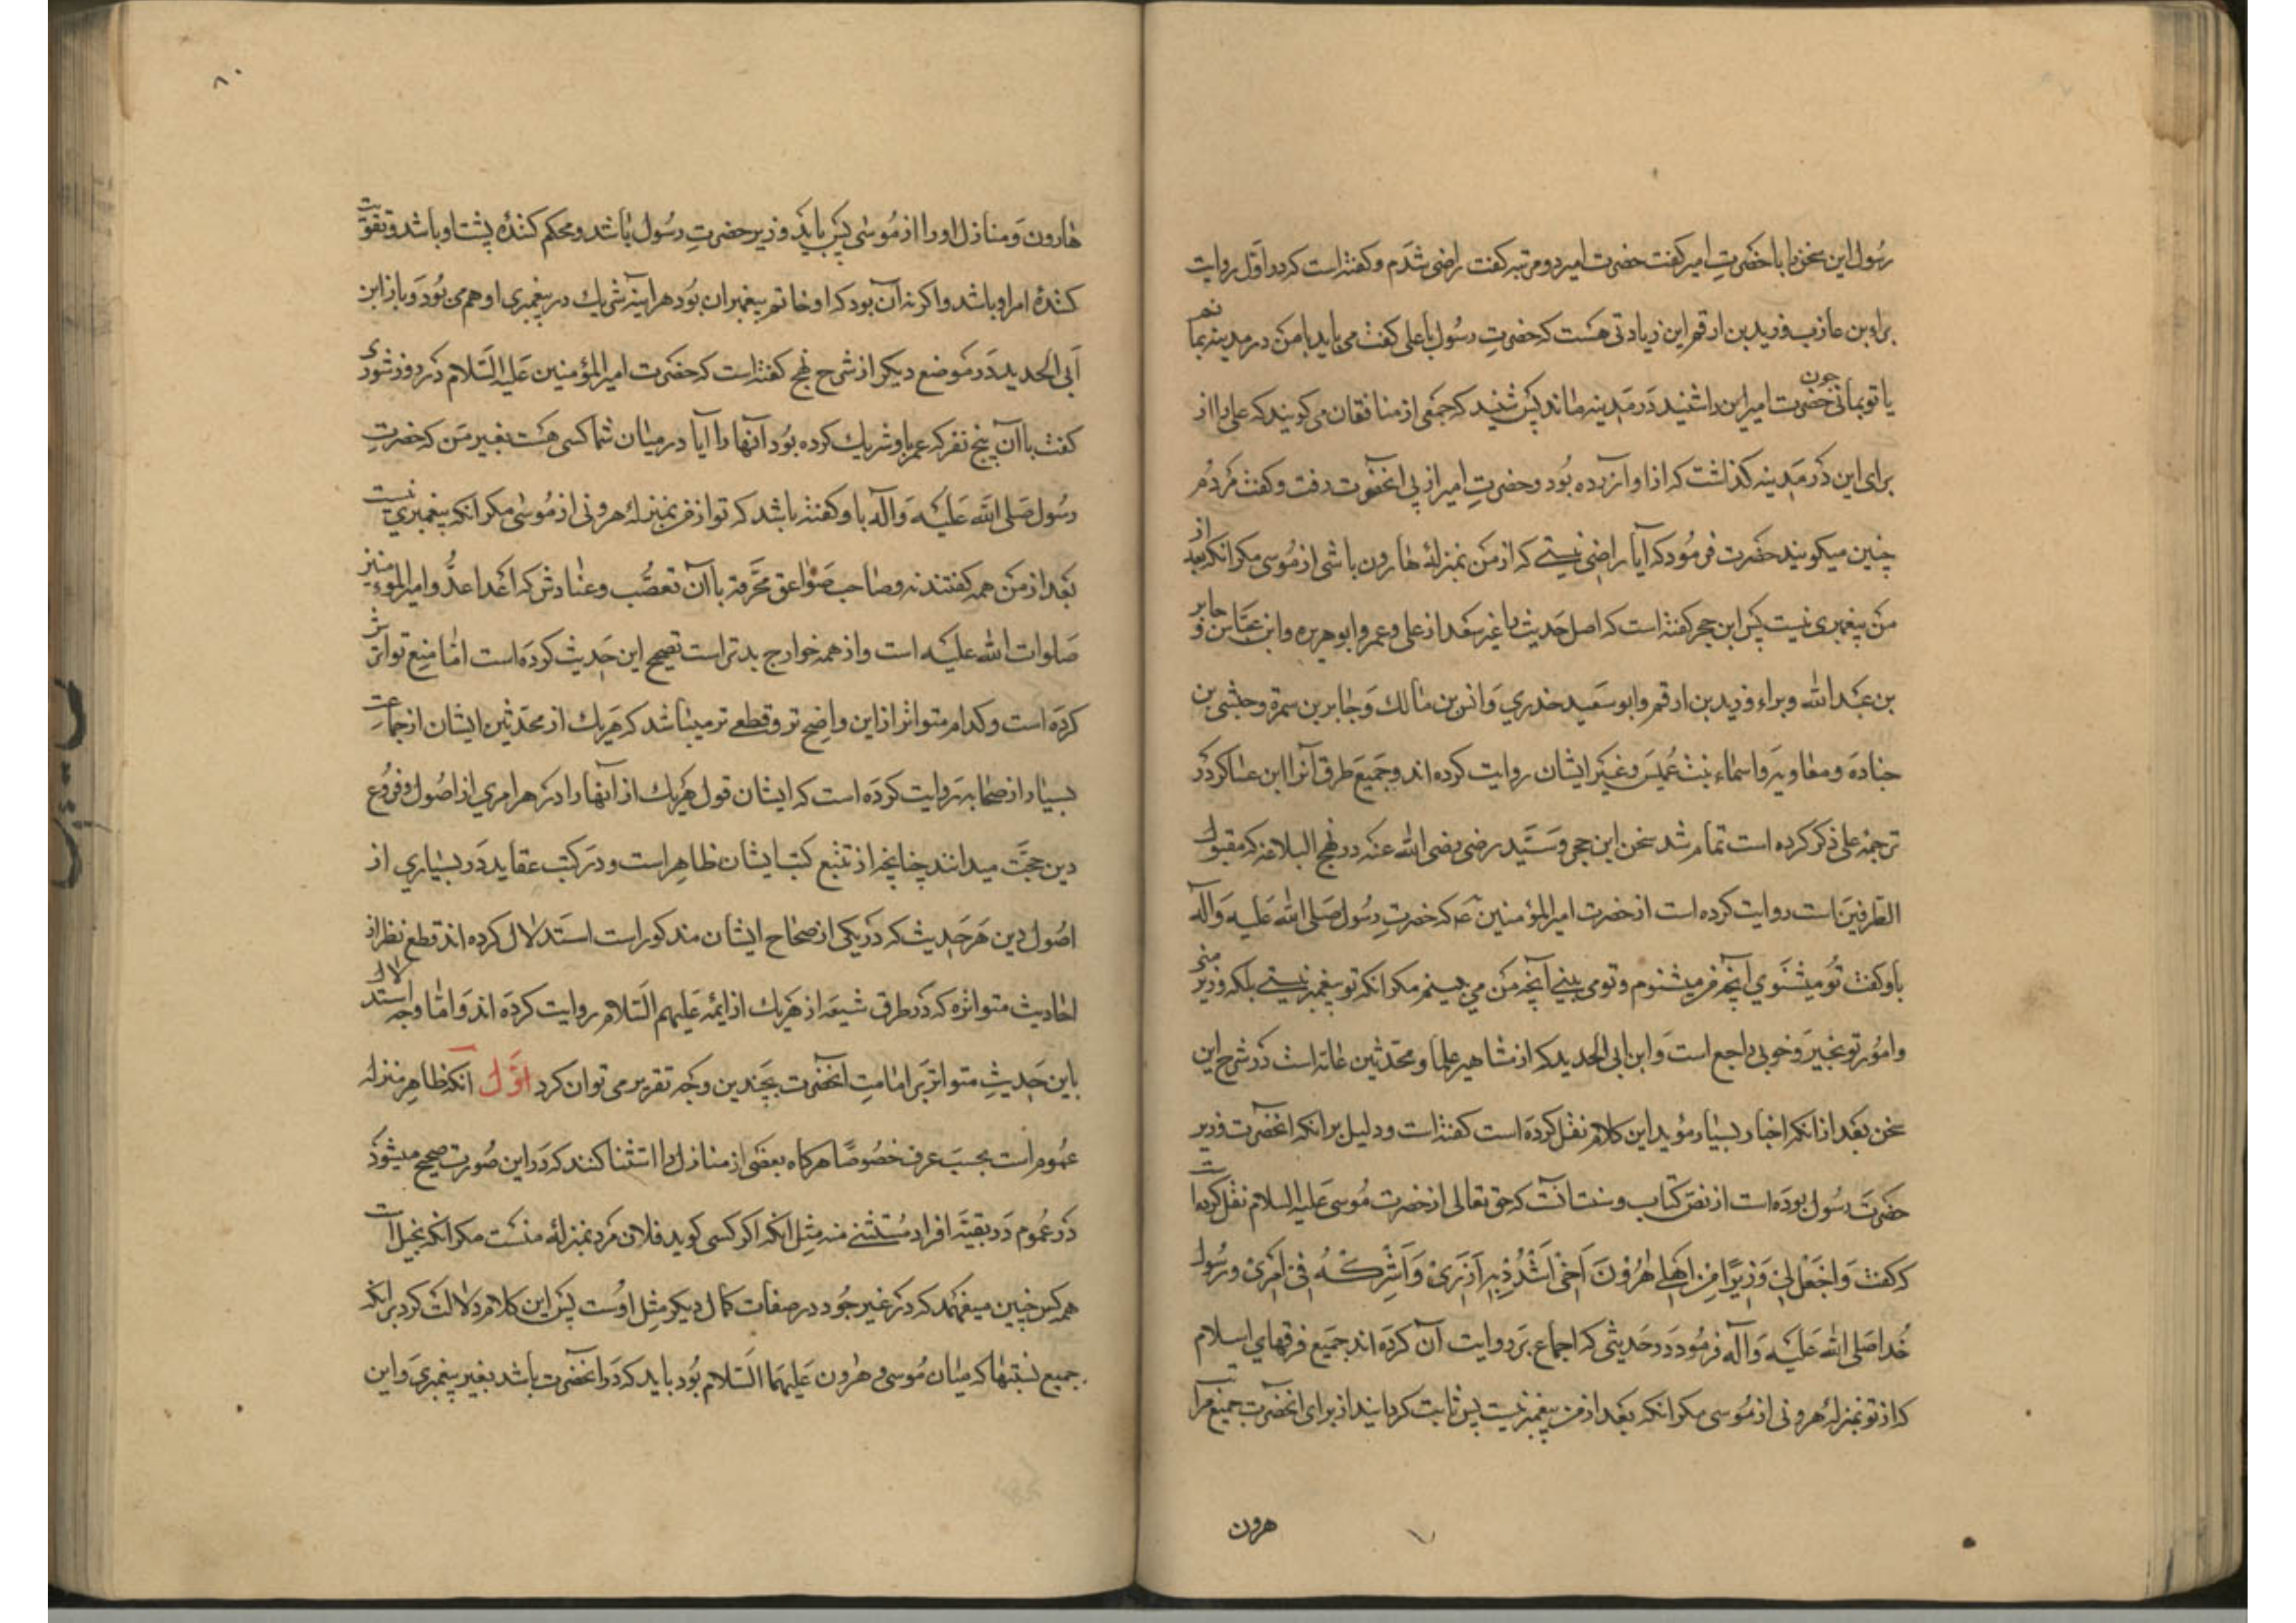 رسول این سخن را با حضرتِ امیر کفت حضرت امیر دو مرتبه کفت راضی شدم و کفته است که در اوّل روایت
براء بن عازب و زید بن ارقم این زیادتی هست که حضرتِ رسُول با علی کفت می باید یا من در مدینه بمانم
یا تو بمانی چون حضرت امیر این را شنید دَر مَدینه ماند پس شنید که جمعی از منافقان می کویند که علی را از
برای این دَر مَدینه کذاشت که از او آزرده بُود و حضرتِ امیر از پی آنحضرت رفت و کفت مَردم
چنین میکویند حضرت فرمُود که آیا راضی نیستی که از من بمنزلهٔ هارون باشی از مُوسی مکر انکه بعد از
من پیغمبری نیست پس ابن حجر کفته است که اصل حَدیث را غیر سَعد از علی و عمر و ابو هریره و ابن عبّاس و جابر
بن عَبد الله و براء و زید بن ارقم و ابو سَعید خدري وَ انس بن مالك وَ جابر بن سمرة و حبشی بن
جنادَه و معاویه و اسماء بنت عُمیس و غیر ایشان روایت کرده اند و جمیع طرق آنرا ابن عساکر دَر
ترجمهٔ علی ذکر کرده است تمام شد سخن ابن حجر و سَیّد رضی رضی الله عنه در نهج البلاغه که مقبول
الطرفین است روایت کرده است از حضرت امیر المؤمنین عَ که حضرتِ رسُول صَلی الله عَلیه وَ آله
باو کفت تُو میشنَوي آنچه من میشنوم و تو می بینی آنچه من می بینم مکر انکه تو پیغمبر نیستی بلکه وزیر منی
و امُور تو بخیر و خوبی راجع است وَ ابن ابی الحدید که از مشاهیر علما و محدّثین عامه است دَر شرح این
سخن بعَد از انکه اخبار بسیار مؤید این کلام نقل کردَه است کفته است و دلیل بر انکه انحضرت وزیر
حضَرت رسُول بودَه است از نصّ کتاب و سنت آنست که حق تعالی از حضرت مُوسی عَلیه السلام نقل کرده است
که کفت وَاجْعَل لِيْ وَزِیْرًا مِنْ اَهْلِي هٰرُوْنَ اَخِيْ اُشْدُدْ بِهِ اَزْرِيْ وَ اَشْرِكْهُ فِيْ اَمْرِيْ و رَسُول
خُدا صَلی الله عَلیَه وَ آله فرمُود دَر حَدیثی که اجماع بَر روایت آن کردَه اند جمَیع فرقهاي اسلام
که از تو بمنزلهٔ هرونی از مُوسی مکر انکه بعَد از من پیغمبر نیست پس ثابت کردانید از برای انحضرت جمیع مراتب
هرون
۸۰
هارون وَ منازل او را از مُوسٰی پس باید وزیر حضرتِ رسُول باشد و محکم کنندهٔ پشت او باشد و تقویت
کنندهٔ امر او باشد و اکر نه آن بود که او خاتم پیغمبران بُود هر اینه شریك در پیغمبری او هم می بُودَ و باز ابن
اَبی الحدید دَر مَوضع دیکر از شرح نهج کفته است که حضرت امیر المؤمنین عَلیه السَّلام دَر روز شوری
کفت با آن پنج نفر که عمر با و شریك کرده بُود آنها را آیا در میان شما کسی هست بغیر من که حضرتِ
رسُول صَلی اللّه عَلیَه وَ آلَه با و کفته باشد که تو از من بمنزلهٔ هرونی از مُوسٰی مکر انکه پیغمبري نیست
بعَد از من همه کفتند نه و صاحب صَوٰاعق محرّقه با آن تعصُّب و عنادش که اَعدا عدُّو امیر المؤمنین
صَلوات اللّٰه علیَه است و از همه خوارج بدتر است تصحیح این حَدیث کردَه است امّا منع تواترش
کردَه است و کدام متواتر از این واضح تر و قطعے تر میباشد که هَر یك از محدّثین ایشان از جماعت
بسیار از صحابه روایت کردَه است که ایشان قول هَریك از آنها را در هر امري از اصُول و فرُوع
دین حجّت میدانند چنانچه از تتبّع کتب ایشان ظاهر است و در کتب عقاید دَر بسیاري از
اصُول دین هَر حَدیث که دَر یکی از صحاح ایشان مذکور است استَدلال کرده اند قطع نظر از
احادیث متواتره که دَر طرق شیعَه از هَریك از ایمّه عَلیهم السَّلام روایت کردَه اند وَ امّا وجه استدلال
باین حَدیثِ متواتر بَر امامتِ انحضرت بچَندین وجه تقریر می توان کرد اوّل آنکه ظاهر منزله
عُموم است بحسَب عرف خصُوصًا هرکاه بعضَی از منازل را استثنا کنند که دَر این صُورت صحیح میشود
دَر عُموم دَر بقیَّه افراد مُستثنے منه مثِل انکه اکر کسی کوید فلان مَرد بمنزلهٔ منست مکر انکه بخیل است
همه کس چنین میفهمَد که دَر غیر جُود در صفات کمال دیکر مثِل اوُست پس این کلام دلالت کرد بر انکه
جمیع نسبتها که میان مُوسٰی و هٰرون عَلیهمَا السَّلام بُود باید که دَر انحضرت باشد بغیر پیغمبري و این